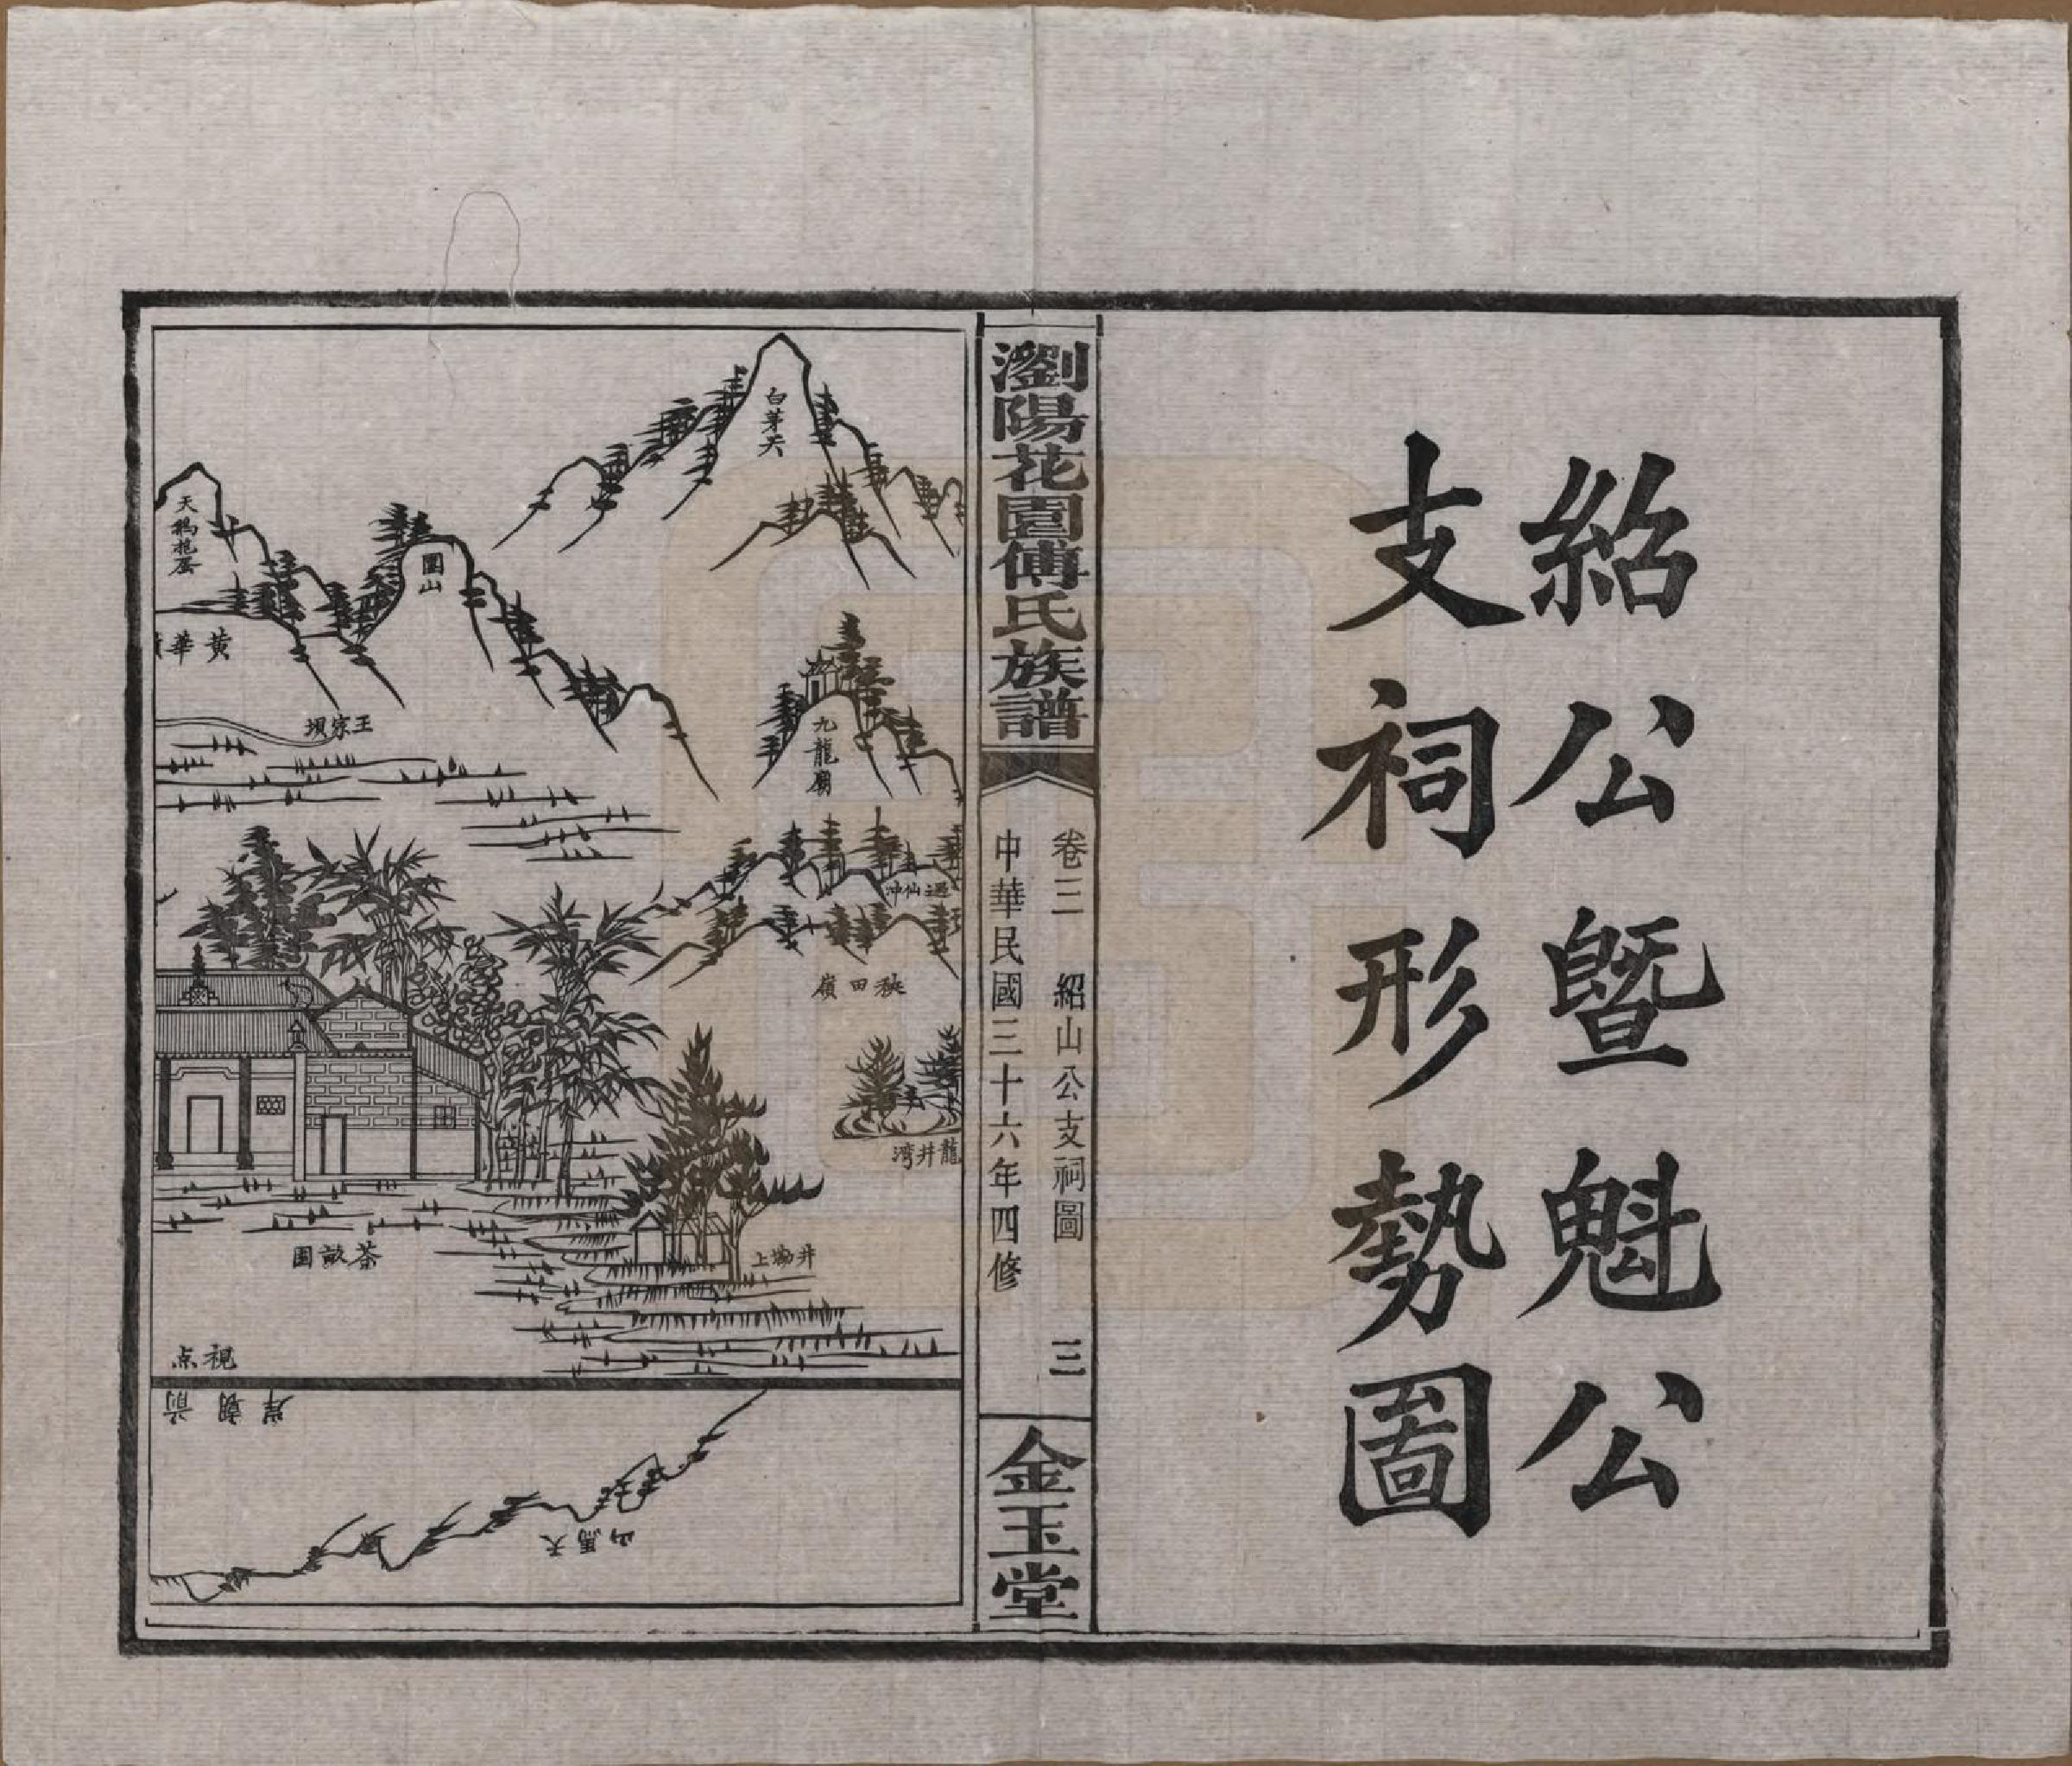 紹公暨魁公
支祠形勢圖
瀏陽花園傅氏族譜
卷三　紹山公支祠圖　三
中華民國三十六年四修
金玉堂
白茅尖
天鵝抱蛋
圍山
黃華
九龍廟
王家垻
過仙冲
秧田嶺
龍井湾
井塘上
茶畝園
視点
前朝岸
天馬山